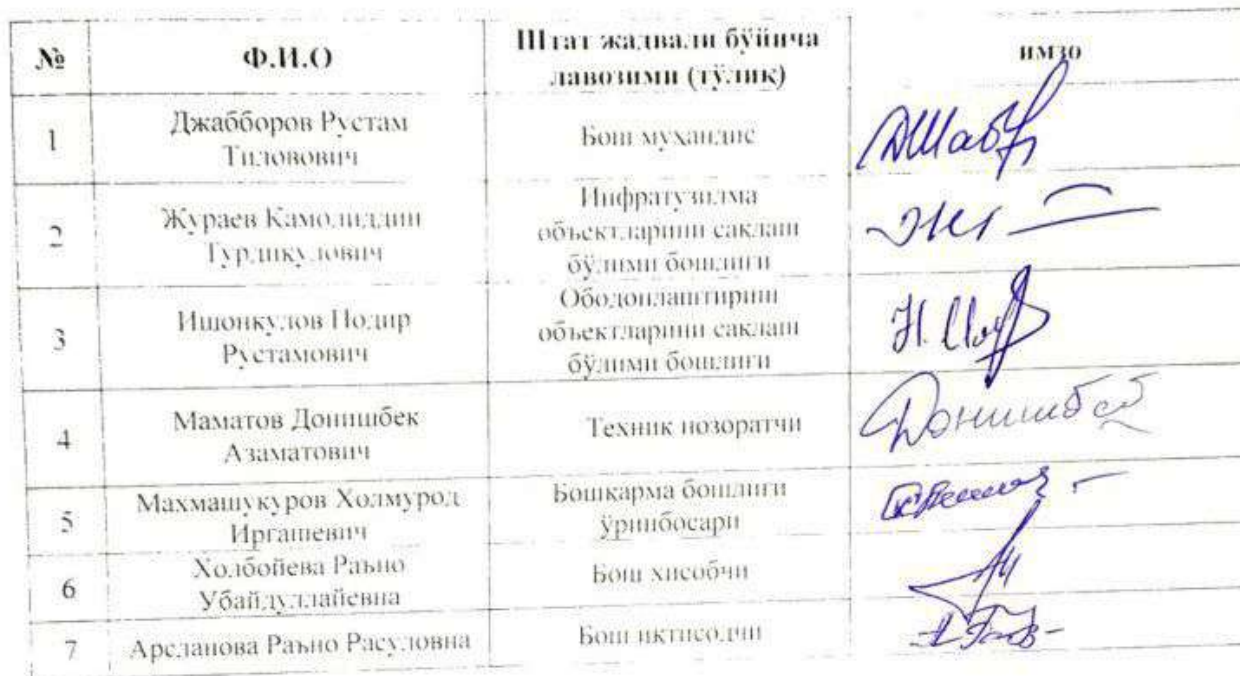 №
Ф.И.О
Штат жадвали бўйича
лавозими (тўлиқ)
имзо
1
Джабборов Рустам
Тиловович
Бош мухандис
2
Жураев Камолиддин
Турдикулович
Инфратузилма
объектларини сақлаш
бўлими бошлиғи
3
Ишонкулов Нодир
Рустамович
Ободонлаштириш
объектларини сақлаш
бўлими бошлиғи
Н.
4
Маматов Донишбек
Азаматович
Техник нозоратчи
Донишбек
5
Махмашукуров Холмурод
Иргашевич
Бошқарма бошлиғи
ўринбосари
6
Холбойева Раъно
Убайдуллайевна
Бош хисобчи
7
Арсланова Раъно Расуловна
Бош иқтисодчи